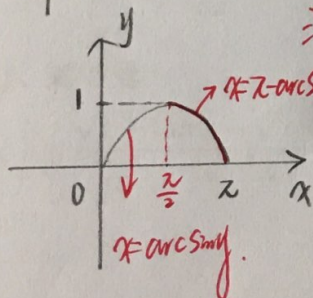 y
1
x=π-arcs
0
π/2
π
x
x=arcsiny.